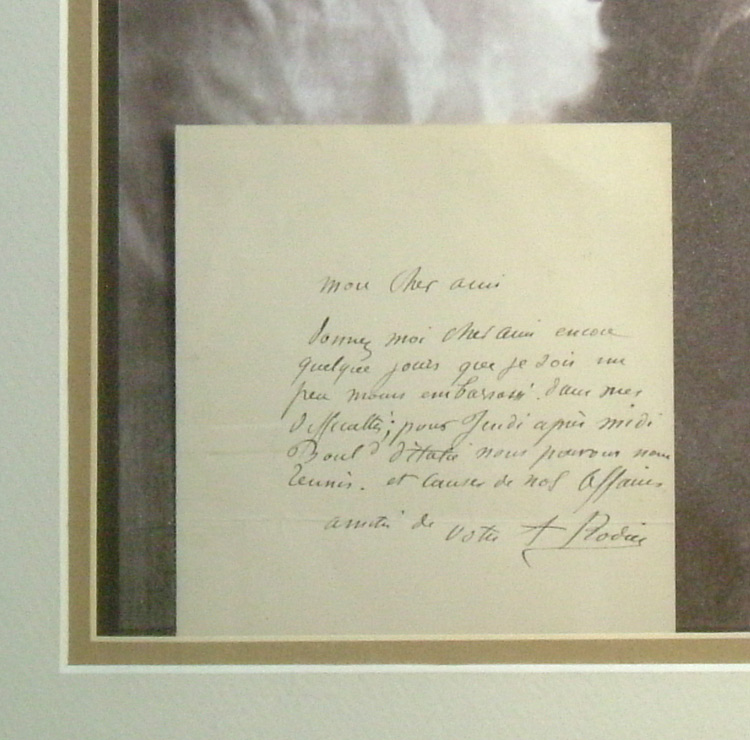 mon cher ami
Donnez moi cher ami encore
quelque jours que je sois un
peu moins embarrassé. dans mes
difficultés; pour Jeudi après midi
Boul d d'Italie nous pouvons nous
réunir. et causer de nos affaires
amitié de votre A Rodin